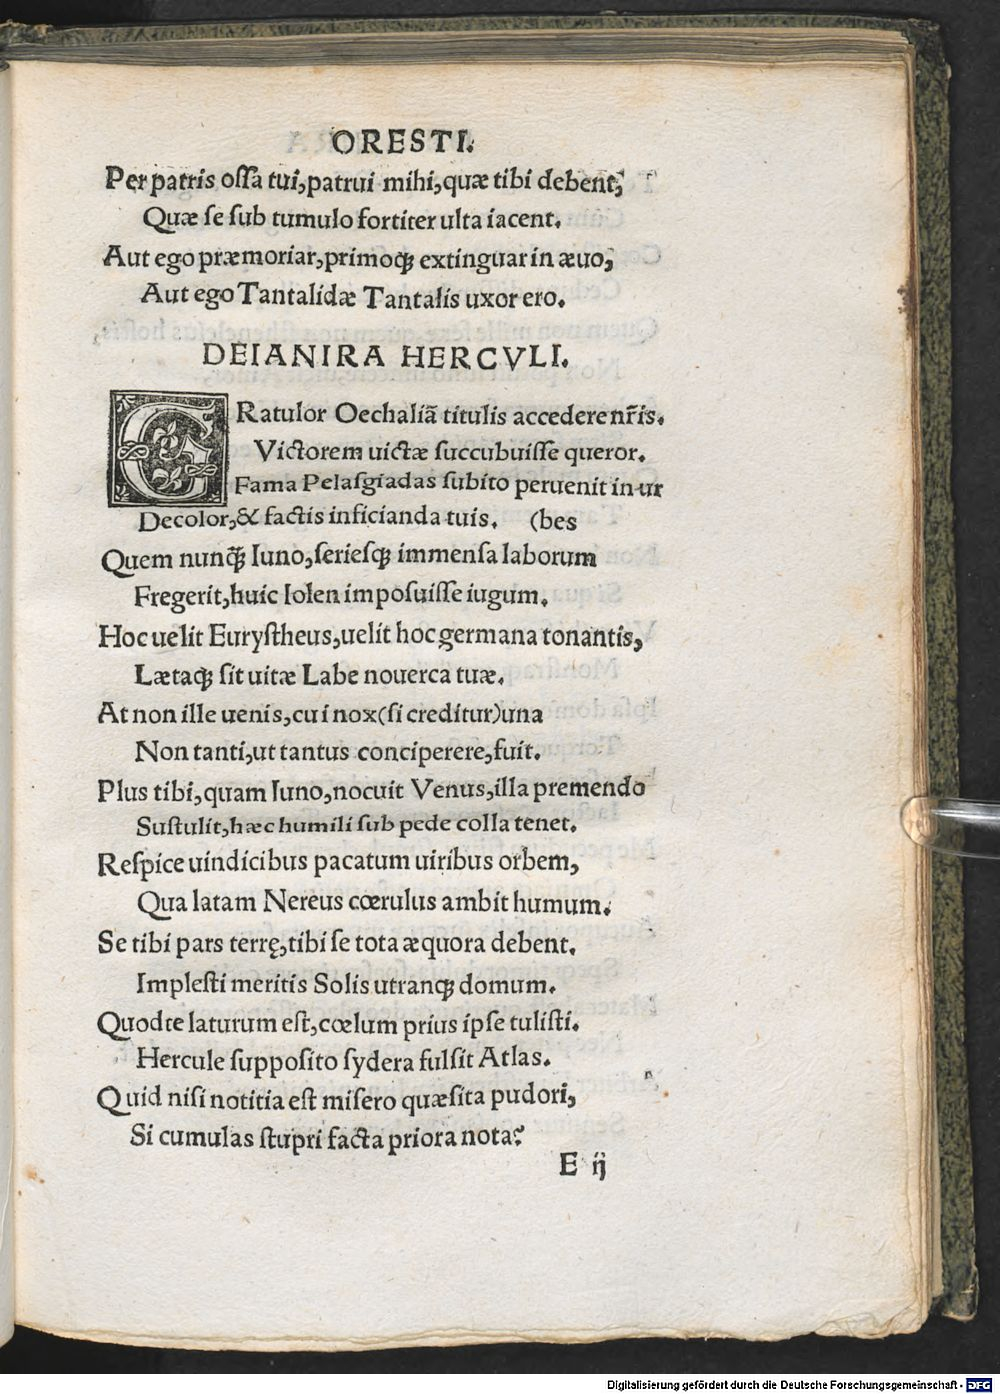 ORESTI.
Per patris ossa tui, patrui mihi, quæ tibi debent,
Quæ se sub tumulo fortiter ulta iacent.
Aut ego præmoriar, primoq; extinguar in æuo,
Aut ego Tantalidæ Tantalis uxor ero.
DEIANIRA HERCVLI.
GRatulor Oechaliā titulis accedere nr̄is.
Victorem uictæ succubuisse queror.
Fama Pelasgiadas subito peruenit in ur
Decolor, & factis inficianda tuis. (bes
Quem nunq̄; Iuno, seriesq; immensa laborum
Fregerit, huic Iolen imposuisse iugum.
Hoc uelit Eurystheus, uelit hoc germana tonantis,
Lætaq; sit uitæ Labe nouerca tuæ.
At non ille uenis, cui nox (si creditur) una
Non tanti, ut tantus conciperere, fuit.
Plus tibi, quam Iuno, nocuit Venus, illa premendo
Sustulit, hæc humili sub pede colla tenet.
Respice uindicibus pacatum uiribus orbem,
Qua latam Nereus cœrulus ambit humum.
Se tibi pars terrę, tibi se tota æquora debent.
Implesti meritis Solis utranq; domum.
Quod te laturum est, cœlum prius ipse tulisti.
Hercule supposito sydera fulsit Atlas.
Quid nisi notitia est misero quæsita pudori,
Si cumulas stupri facta priora nota?
E ij
Digitalisierung gefördert durch die Deutsche Forschungsgemeinschaft - DFG